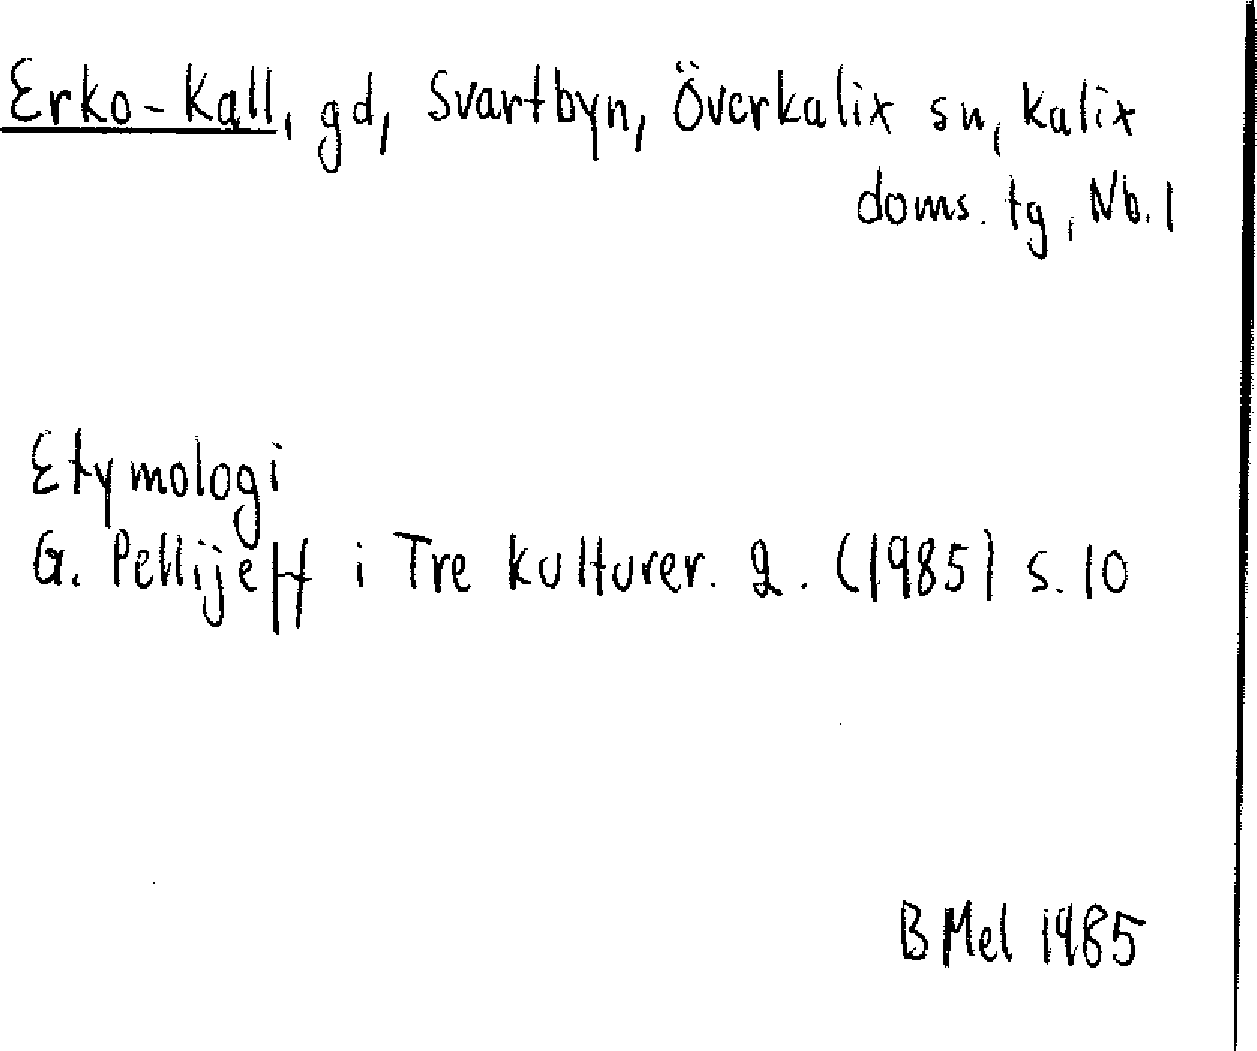 Erko-Kall, gd, Svartbyn, Överkalix sn, Kalix
doms. tg, Nb. l
Etymologi
G. Pellijeff i Tre kulturer. 2. (1985) s. 10
B Mel 1985